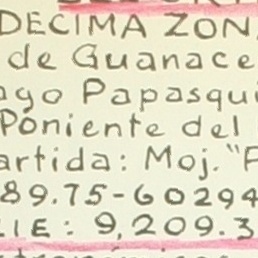 DECIMA ZON
de Guanace
ago Papasqui
Poniente del
artida: Moj. "P
89.75-60294
IE: 9,209.3